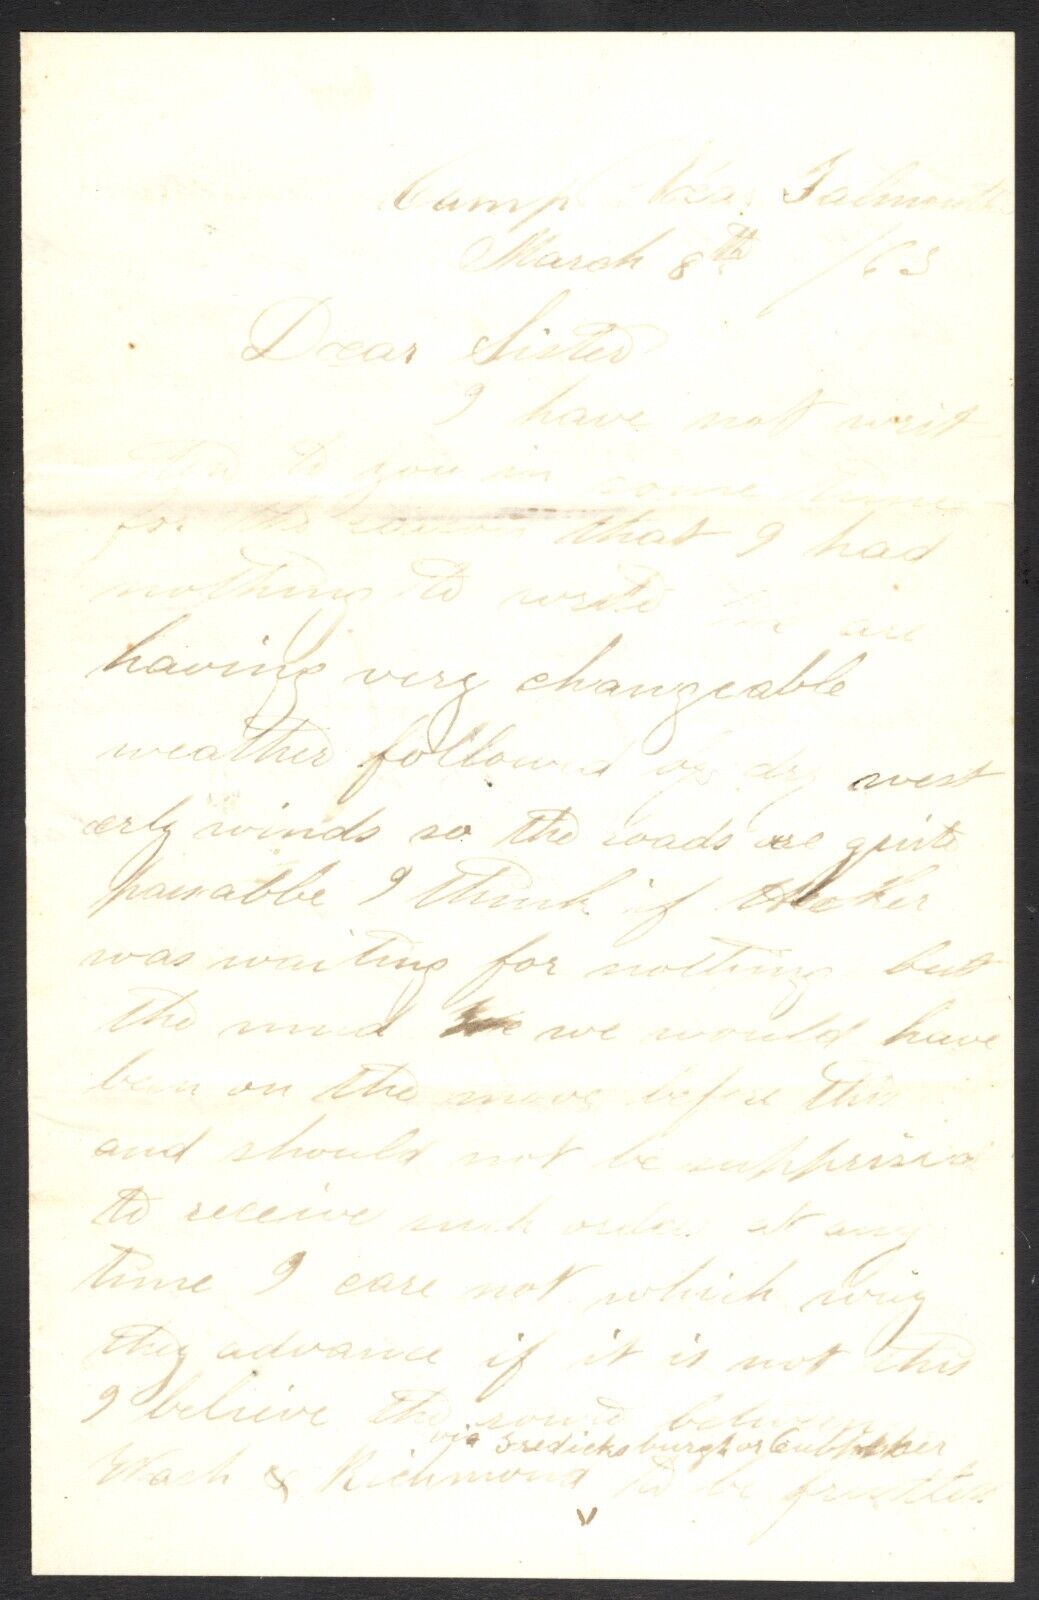 Camp Near Falmouth
March 8th /63
Dear Sister
I have not writ
ten to you in some time
for the reason that I had
nothing to write we are
having very changeable
weather followed by dry west
erly winds so the roads are quite
passabbe I think if Hooker
was waiting for nothing but
the mud we would have
been on the move before this
and should not be supprised
to receive such orders at any
time I care not which way
they advance if it is not this
I believe the route between
via Fredicksburgh or Culpepper
Wash & Richmond to be fruitless
v